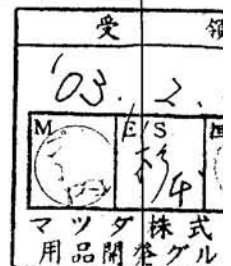 受 領
'03. 2.
M E/S
杉
マツダ株式
用品開発グル